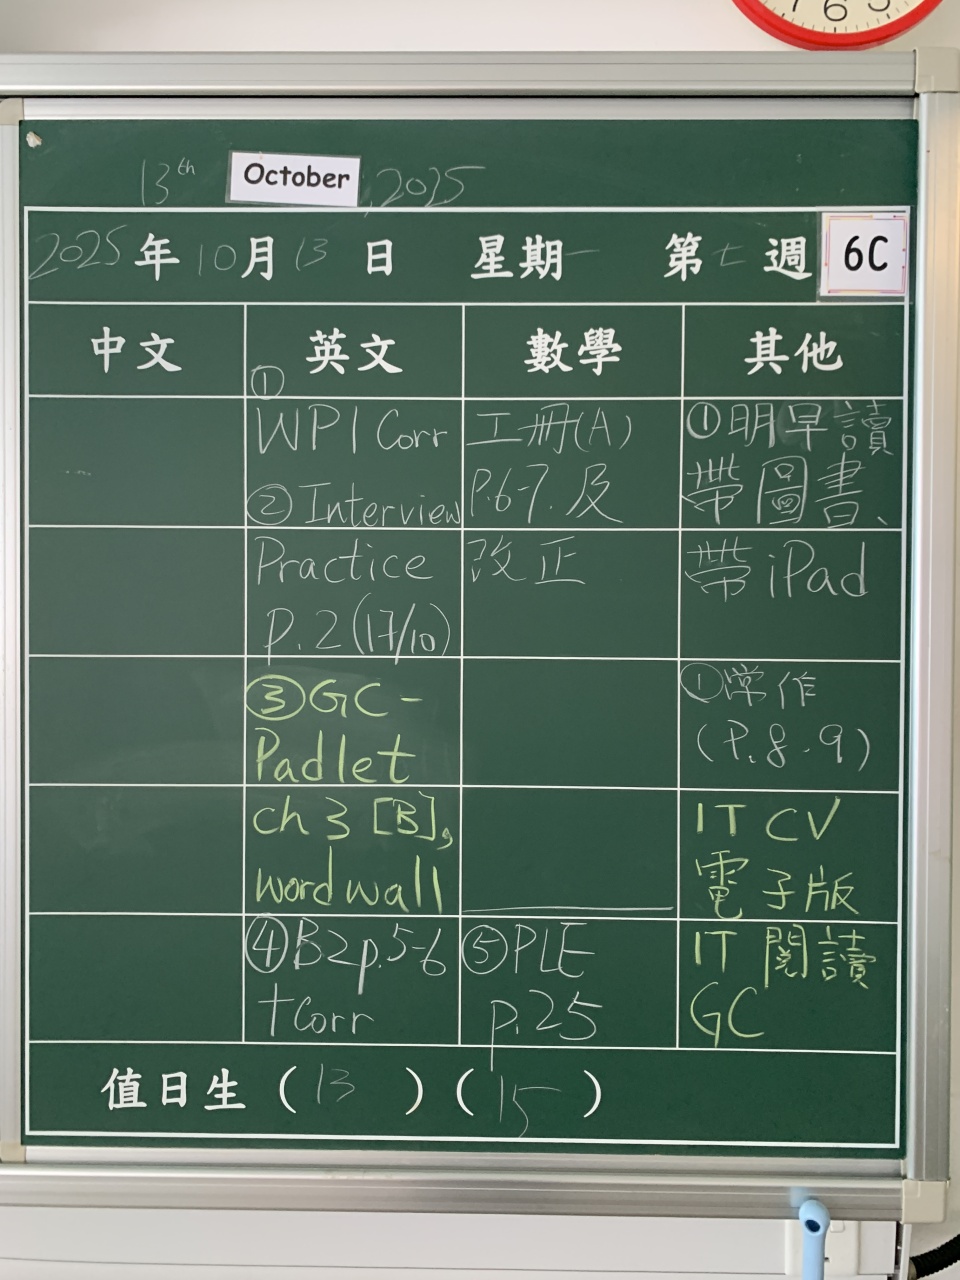 7 6 5
13th October, 2025
2025年10月13日 星期一 第七週 6C
中文 英文 數學 其他
①
WP1 Corr
② Interview
Practice
p.2 (17/10)
③ GC-
Padlet
ch 3 [B],
word wall
④ B2 p.5-6
+Corr
工冊(A)
P.6-7.及
改正
⑤ PLE
p.25
①明早讀
帶圖書、
帶iPad
①常作
(P.8-9)
IT CV
電子版
IT 閱讀
GC
值日生 (13) (15)